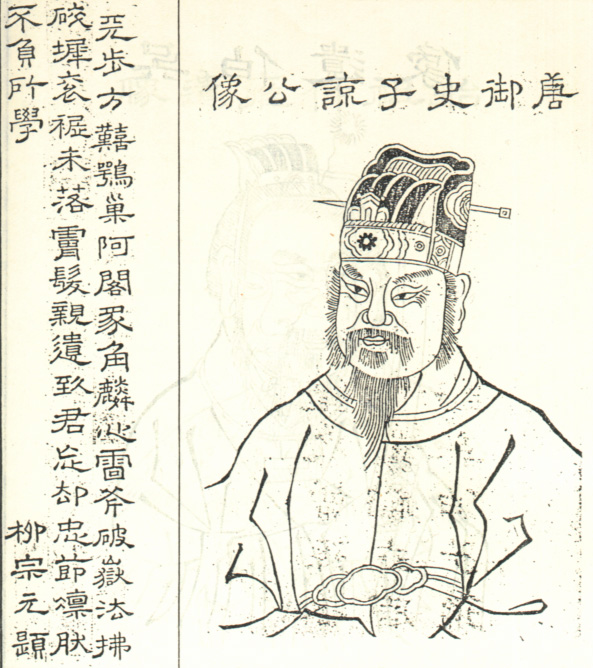 唐御史子諒公像
天步方囏鶚巢阿閣豕角麟心雷斧破嶽法拂
墀衮裾未落霣髮親遺致君忘却忠節凜肰
不負所學 柳宗元題